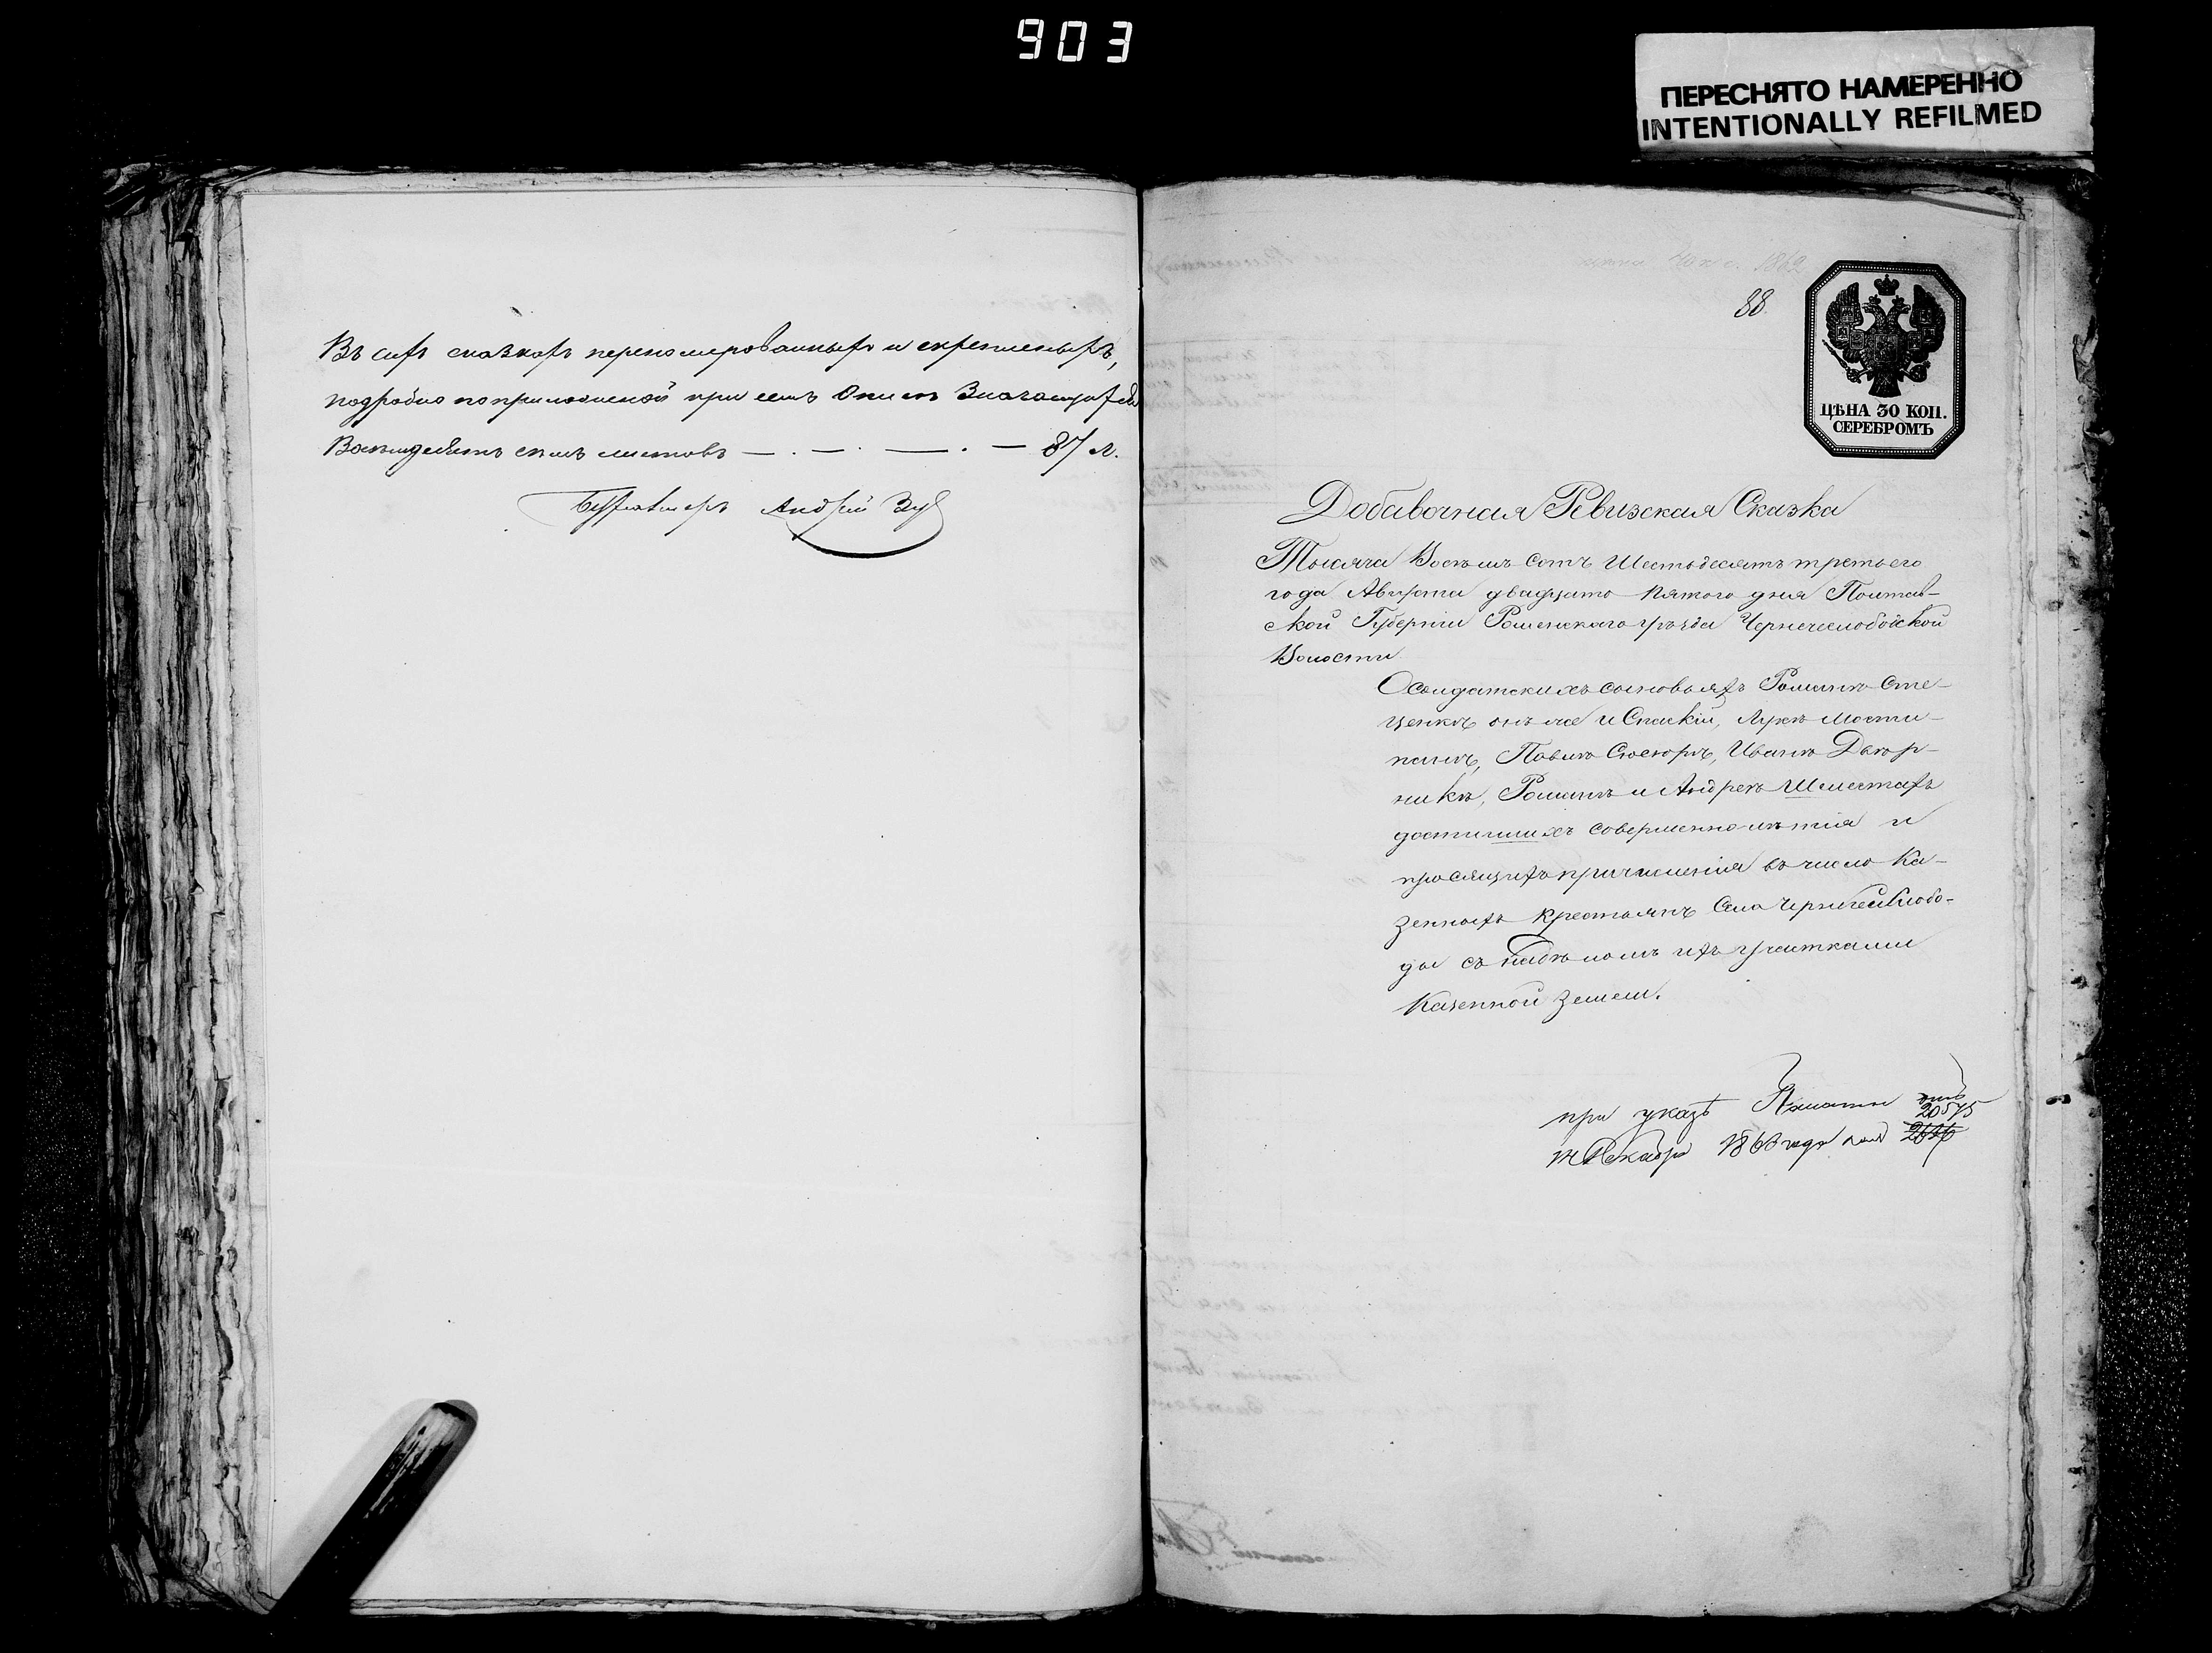 903
ПЕРЕСНЯТО НАМЕРЕННО
INTENTIONALLY REFILMED
Въ сихъ сказкахъ перенумерованныхъ и скрепленыхъ,
подробно по приложенной при семъ Описи Значащихся
Восимдесятъ семь листовъ — . — . — . — 87 л.
Бухгалтеръ Андрій Зуб
88.
ЦѢНА 30 КОП.
СЕРЕБРОМЪ
Добавочная Ревизская Сказка
Тысяча Восемь сотъ Шестьдесятъ третьего
года Августа двадцато пятого дня Полтав-
ской Губерніи Роменскаго уѣзда Чернечеслободской
Волости
О солдатскихъ сыновьяхъ Романѣ Сте-
ценкѣ онъ же и Спаскій, Лукѣ
Павлѣ Иванѣ Двор-
никѣ, Романѣ и Андреѣ
достигшихъ совершеннолѣтія и
просящихъ причисленія въ число Ка-
зенныхъ Крестьянъ Села Чернечей Слобо-
ды съ надѣломъ ихъ участками
Казенной земли.
при указѣ Палаты отъ
Декабря 1863 года за № 20575